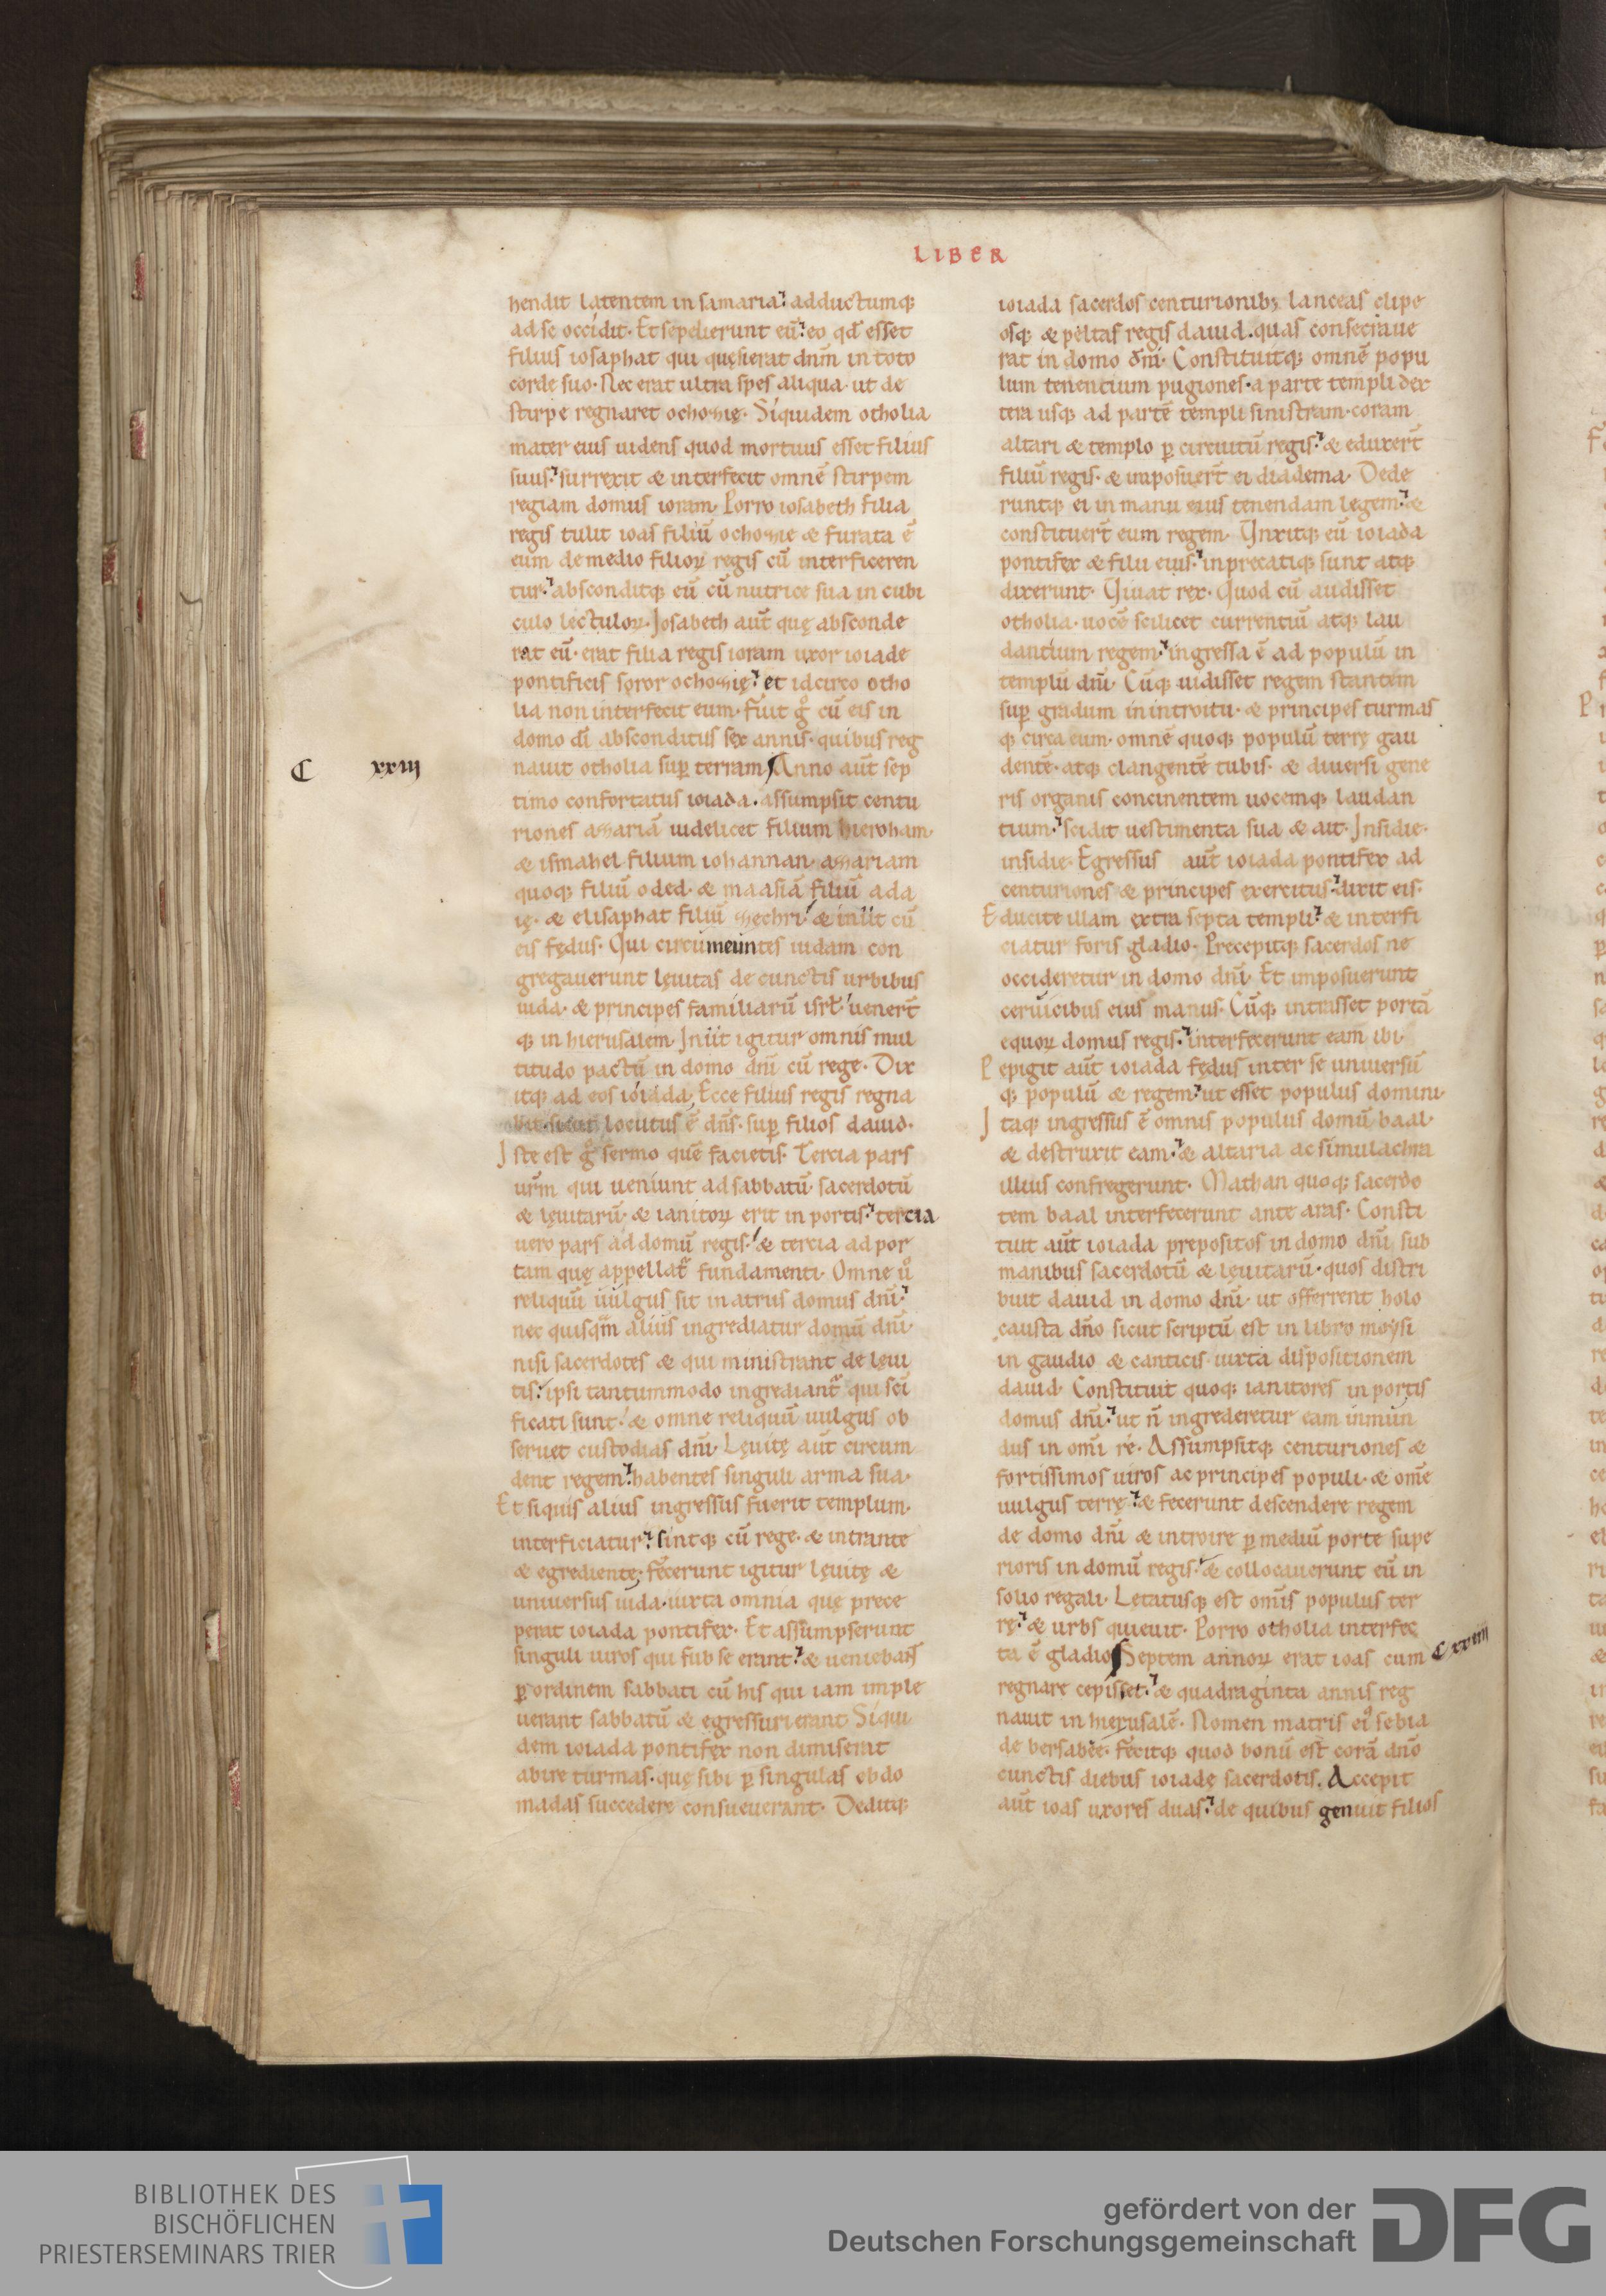 LIBER
hendit latentem in samaria. adductumq;
ad se occidit. Et sepelierunt eū. eo qđ esset
filius iosaphat qui quęsierat dnm̄ in toto
corde suo. Nec erat ultra spes aliqua. ut de
stirpe regnaret ochozię. Siquidem otholia
mater eius uidens quod mortuus esset filius
suus. surrexit & interfecit omnē stirpem
regiam domus ioram. Porro iosabeth filia
regis tulit ioas filiū ochozie & furata ē
eum de medio filioꝝ regis cū interficeren
tur. absconditq; eū cū nutrice sua in cubi
culo lectuloꝝ. Josabeth aūt quę absconde
rat eū. erat filia regis ioram uxor ioiade
pontificis soror ochozię. et idcirco otho
lia non interfecit eum. fuit gͦ cū eis in
domo dī absconditus sex annis. quibus reg
nauit otholia suꝑ terram. Anno aūt sep
C xxiij
timo confortatus ioiada. assumpsit centu
riones azariā uidelicet filium hieroham.
& ismahel filium iohannan. azariam
quoq; filiū oded. & maasiā filiū ada
ię. & elisaphat filiū zechri. & iniit cū
eis fędus. Qui circumeuntes iudam con
gregauerunt lęuitas de cunctis urbibus
iuda. & principes familiarū isrł. uenert̄
q; in hierusalem. Iniit igitur omnis mul
titudo pactū in domo dnī cū rege. Dix
itq; ad eos ioiada. Ecce filius regis regna
bit. sicut locutus ē dn̄s. suꝑ filios dauid.
Iste est gͦ sermo quē facietis. Tercia pars
urm̄ qui ueniunt ad sabbatū sacerdotū
& lęuitarū. & ianitoꝝ erit in portis. tercia
uero pars ad domū regis. & tercia ad por
tam quę appellat᷑ fundamenti. Omne uͦ
reliquū uulgus sit in atriis domus dnī.
nec quisqͣm alius ingrediatur domū dnī
nisi sacerdotes & qui ministrant de lęui
tis. ipsi tantummodo ingrediant᷑ qui scī
ficati sunt. & omne reliquū uulgus ob
seruet custodias dnī. Lęuitę aūt circum
dent regem. habentes singuli arma sua.
Et siquis alius ingressus fuerit templum.
interficiatur. sintq; cū rege. & intrante
& egrediente. fecerunt igitur lęuitę &
uniuersus iuda. iuxta omnia quę prece
perat ioiada pontifex. Et assumpserunt
singuli uiros qui sub se erant. & uenieban̄t
ꝑ ordinem sabbati cū his qui iam imple
uerant sabbatū & egressuri erant. Siqui
dem ioiada pontifex non dimiserat
abire turmas. quę sibi ꝑ singulas ebdo
madas succedere consueuerant. Deditq;
ioiada sacerdos centurionib; lanceas clipe
osq; & peltas regis dauid. quas consecraue
rat in domo dnī. Constituitq; omnē popu
lum tenentium pugiones. a parte templi dex
tera usq; ad partē templi sinistram. coram
altari & templo ꝑ circuitū regis. & eduxert̄
filiū regis. & imposuert̄ ei diadema. Dede
runtq; ei in manu eius tenendam legem. &
constituert̄ eum regem. Unxitq; eū ioiada
pontifex & filii eius. inprecatiq; sunt atq;
dixerunt. Viuat rex. Quod cū audisset
otholia. uocē scilicet currentiū atq; lau
dantium regem. ingressa ē ad populū in
templū dnī. Cūq; uidisset regem stantem
suꝑ gradum in introitu. & principes turmas
q; circa eum. omnē quoq; populū terrę gau
dentē. atq; clangentē tubis. & diuersi gene
ris organis concinentem uocemq; laudan
tium. scidit uestimenta sua & ait. Insidie.
insidie. Egressus aūt ioiada pontifex ad
centuriones & principes exercitus. dixit eis.
Educite illam extra septa templi. & interfi
ciatur foris gladio. Precepitq; sacerdos ne
occideretur in domo dnī. Et imposuerunt
ceruicibus eius manus. Cūq; intrasset portā
equoꝝ domus regis. interfecerunt eam ibi.
Pepigit aūt ioiada fędus inter se uniuersū
q; populū & regem. ut esset populus domini.
Itaq; ingressus ē omnis populus domū baal.
& destruxit eam. & altaria ac simulachra
illius confregerunt. Mathan quoq; sacerdo
tem baal interfecerunt ante aras. Consti
tuit aūt ioiada prepositos in domo dnī sub
manibus sacerdotū & lęuitarū. quos distri
buit dauid in domo dnī. ut offerrent holo
causta dño sicut scriptū est in libro moysi
in gaudio & canticis. iuxta dispositionem
dauid. Constituit quoq; ianitores in portis
domus dnī. ut n̄ ingrederetur eam inmun
dus in omī re. Assumpsitq; centuriones &
fortissimos uiros ac principes populi. & omē
uulgus terrę. & fecerunt descendere regem
de domo dnī & introire ꝑ mediū porte supe
rioris in domū regis. & collocauerunt eū in
solio regali. Letatusq; est omīs populus ter
rę. & urbs quieuit. Porro otholia interfec
ta ē gladio. Septem annoꝝ erat ioas cum
C xxiiij
regnare cepisset. & quadraginta annis reg
nauit in hierusalē. Nomen matris ei᷒ sebia
de bersabee. fecitq; quod bonū est corā dño
cunctis diebus ioiadę sacerdotis. Accepit
aūt ioas uxores duas. de quibus genuit filios
BIBLIOTHEK DES
BISCHÖFLICHEN
PRIESTERSEMINARS TRIER
gefördert von der
Deutschen Forschungsgemeinschaft
DFG